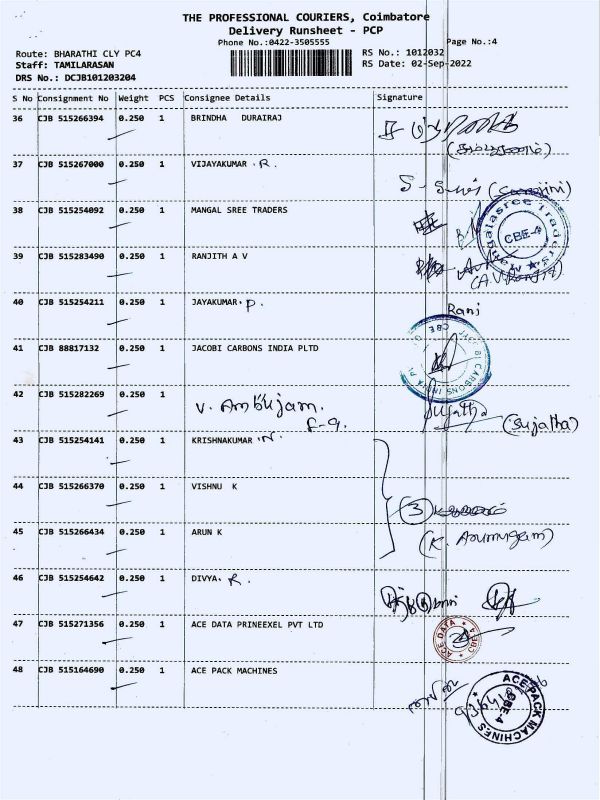 THE PROFESSIONAL COURIERS, Coimbatore
Delivery Runsheet - PCP
Phone No.:0422-3505555
Page No.:4
Route: BHARATHI CLY PC4
RS No.: 1012032
Staff: TAMILARASAN
RS Date: 02-Sep-2022
DRS No.: DCJB101203204
S No Consignment No Weight PCS Consignee Details Signature
36 CJB 515266394 0.250 1 BRINDHA DURAIRAJ
37 CJB 515267000 0.250 1 VIJAYAKUMAR .R.
(Sarojini)
38 CJB 515254092 0.250 1 MANGAL SREE TRADERS
Mangalasree Traders CBE-4
39 CJB 515283490 0.250 1 RANJITH A V
(A.V. Ranjit)
40 CJB 515254211 0.250 1 JAYAKUMAR .P.
Ranj
41 CJB 88817132 0.250 1 JACOBI CARBONS INDIA PLTD
42 CJB 515282269 0.250 1 V. Ambujam.
F-9.
Sujatha (Sujatha)
43 CJB 515254141 0.250 1 KRISHNAKUMAR .N.
44 CJB 515266370 0.250 1 VISHNU K
3
45 CJB 515266434 0.250 1 ARUN K
(K. Arumugam)
46 CJB 515254642 0.250 1 DIVYA. R.
47 CJB 515271356 0.250 1 ACE DATA PRINEEXEL PVT LTD
ACE DATA
48 CJB 515164690 0.250 1 ACE PACK MACHINES
ACE PACK MACHINES CBE-4